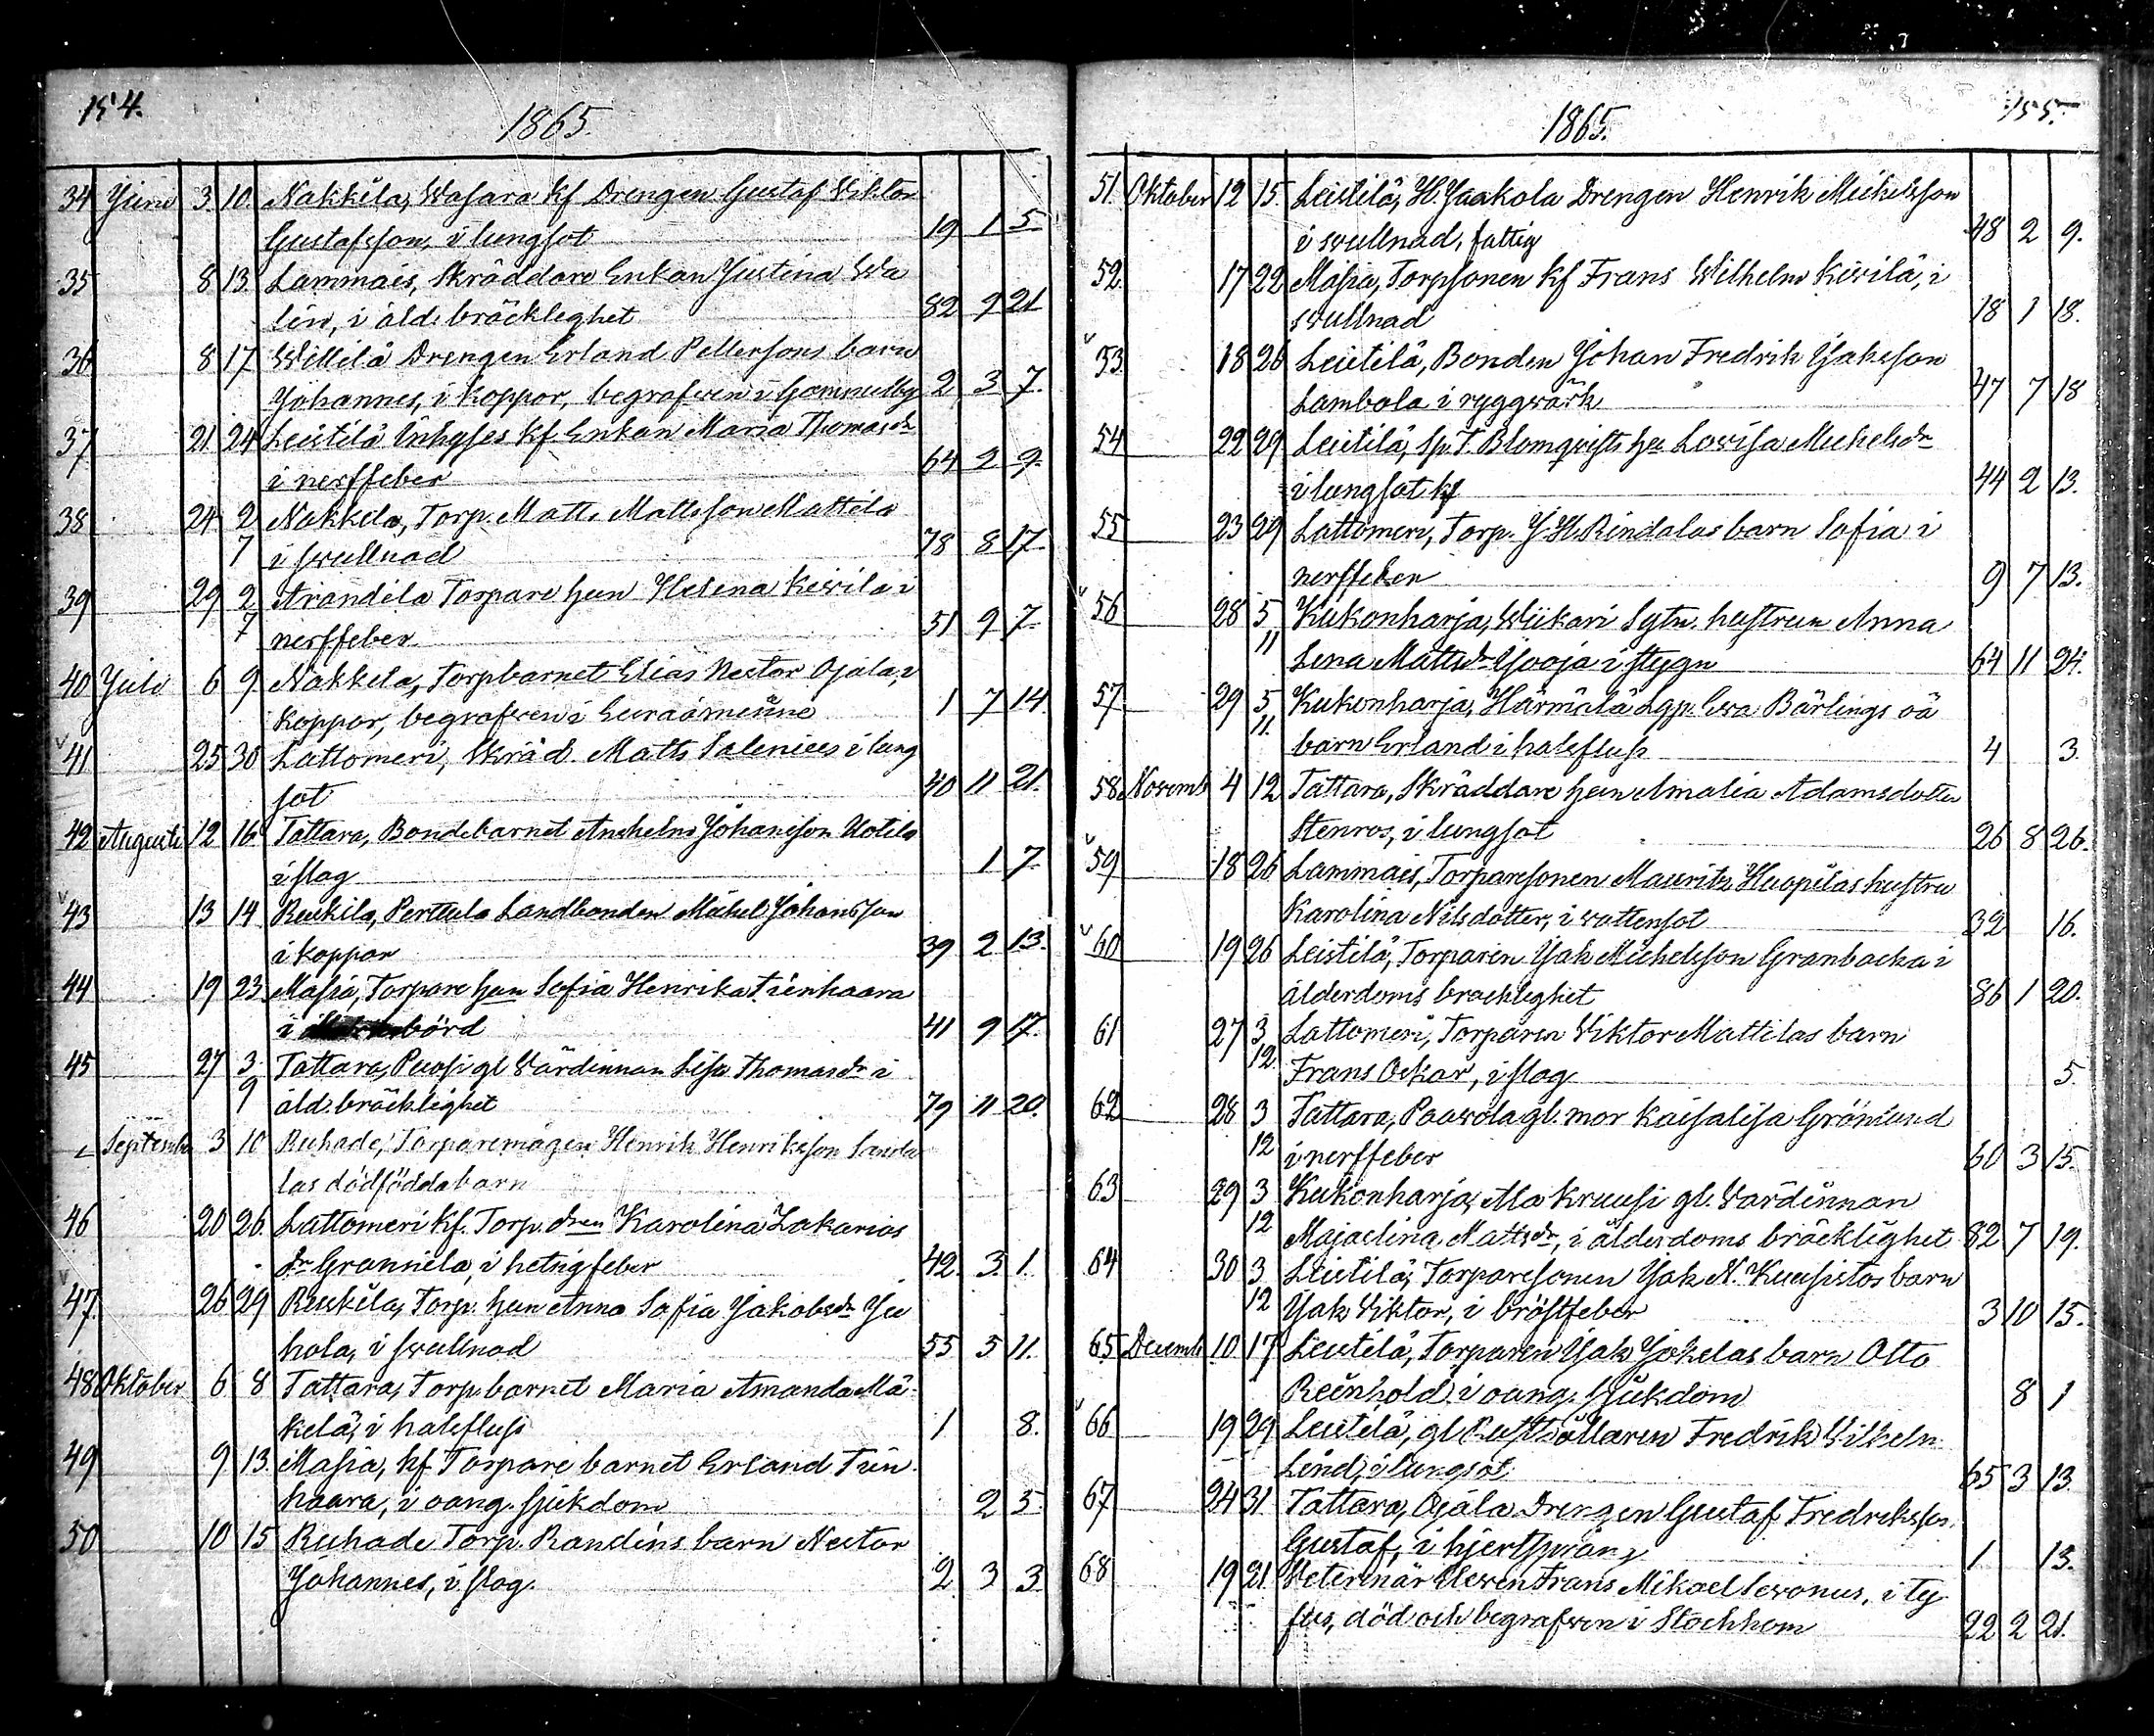 154.
1865.
34 Juni 3 10. Nakkila, Wasara Kf Drengen Gustaf Viktor
Gustafsson, i lungsot 19 1 5
35 8 13 Lammais, Skräddare Enkan Justina Wa
lin, i åld. bräcklighet 82 9 21
36 8 17 Willilä Drengen Erland Pettersons barn
Johannes, i koppor, begrafwen i Gammelby 2 3 7.
37 21 24 Leistilä Kf Enkan Maria Thomasdr
i nerffeber 64 2 9.
38 24 2 Nakkila, Torp. Matts Mattsson Mattila
7 i swullnad 78 8 17.
39 29 2 Arandila Torpare hun Helena Kiwilä i
7 nerffeber 51 9 7
40 Juli 6 9 Nakkila, Torpbarnet Elias Nestor Ojala, i
koppor, begrafwen i Euraåminne 1 7 14.
41 25 30 Lattomeri, Skräd. Matts Salenius i lung
sot 40 11 21.
42 Augusti 12 16 Tattara, Bondebarnet Anshelm Johansson Uotila
i slag 1 7.
43 13 14 Ruskila, Perttula Landbonden Mikel Johansson
i koppor 39 2 13.
44 19 23 Masia, Torpare hun Sofia Henrika Tienhaara
i börd 41 9 17.
45 27 3 Tattara, Puosi gl Värdinnan Lisa Thomasdr i
9 åld. bräcklighet 79 11 20.
September 3 10 Ruhade, Torparemågen Henrik Henriksson Sanda
las dödfödda barn
46 20 26. Lattomeri Kf. Torp. dren Karolina Zakarias
dr Grannila, i hetsig feber 42. 3. 1.
47. 26 29 Ruskila, Torp. hun Anna Sofia Jakobsdr Ju
hola, i swullnad 55 5 11.
48 Oktober 6 8 Tattara, Torp. barnet Maria Amanda Mä-
kelä, i halsfluss 1 8.
49 9 13. Masia, Kf Torpare barnet Erland Tien
haara, i oang. sjukdom 2 5
50 10 15 Ruhade Torp. Randéns barn Nestor
Johannes, i slag. 2 3 3.
155.
1865.
51. Oktober 12 15. Leistilä, H. Jaakola Drengen Henrik Mickelsson
i swullnad, fattig 48 2 9.
52. 17 22 Masia, Torpsonen Kf Frans Wilhelm Kiwilä, i
swullnad 18 1 18.
53. 18 26 Leistilä, Bonden Johan Fredrik Jaksson
Lambola i ryggvärk 47 7 18
54 22 29 Leistilä, Sp. T. Blomqvists hu Lovisa Mickelsdr
i lungsot Kf 44 2 13.
55 23 29 Lattomeri, Torp. J. H. Rindalas barn Sofia i
nerffeber 9 7 13.
56 28 5 Kukonharja, Wiikari Sytn. hustrun Anna
11 Lena Mattsdr Jooja i stygn 64 11 24.
57. 29 5 Kukonharja, Härmälä Lgp. Eva Bärlings oä
11. barn Erland i halsfluss 4 3.
58 Novemb 4 12 Tattara, Skräddare hun Amalia Adamsdotter
Stenros, i lungsot 26 8 26.
59 18 26 Lammais, Torparesonen Mauritz Huopilas hustru
Karolina Nilsdotter, i wattensot 32 16.
60 19 26 Leistilä, Torparen Jak Mickelsson Granbacka i
ålderdoms bräcklighet 86 1 20.
61 27 3 Lattomeri, Torparen Viktor Mattilas barn
12 Frans Oskar, i slag 5.
62 28 3 Tattara, Paavola gl. mor Kaisa Lisa Grönlund
12 i nerffeber 60 3 15.
63 29 3 Kukonharja, Ala Kruusi gl. Värdinnan
12 Maja Lina Mattsdr, i ålderdoms bräcklighet 82 7 19.
64 30 3 Leistilä, Torparesonen Jak N. Kuusistos barn
12 Jak Viktor, i bröstfeber 3 10 15.
65 Decemb 10 17 Leistilä, Torparen Jak Jokelas barn Otto
Reinhold i oang. sjukdom 8 1
66 19 29 Leistilä, gl Rusthållaren Fredrik Vilhelm
Lind, i lungsot 65 3 13.
67 24 31. Tattara, Ojala Drengen Gustaf Fredrikssons
Gustaf, i hjertsprång 1 13.
68 19 21 Veterinär Eleven Frans Mikael Levonius, i ty
fus, död och begrafwen i Stockhom 22 2 21.